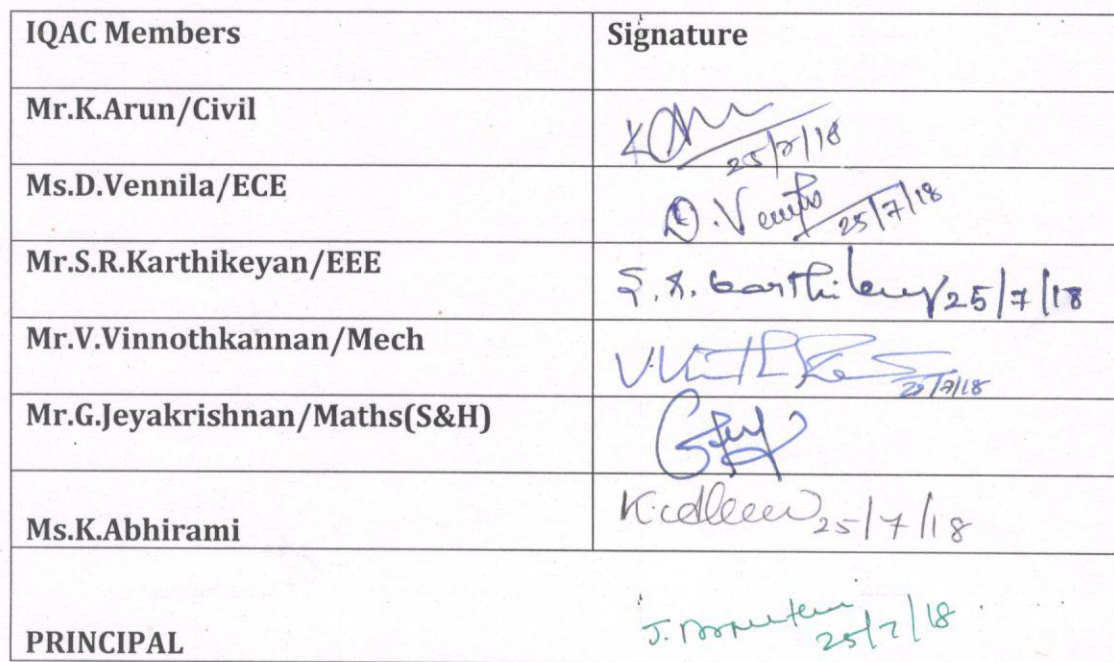 IQAC Members Signature
Mr.K.Arun/Civil 25/7/18
Ms.D.Vennila/ECE D. 25/7/18
Mr.S.R.Karthikeyan/EEE S.R. 25/7/18
Mr.V.Vinnothkannan/Mech 25/7/18
Mr.G.Jeyakrishnan/Maths(S&H)
Ms.K.Abhirami 25/7/18
PRINCIPAL J. 25/7/18